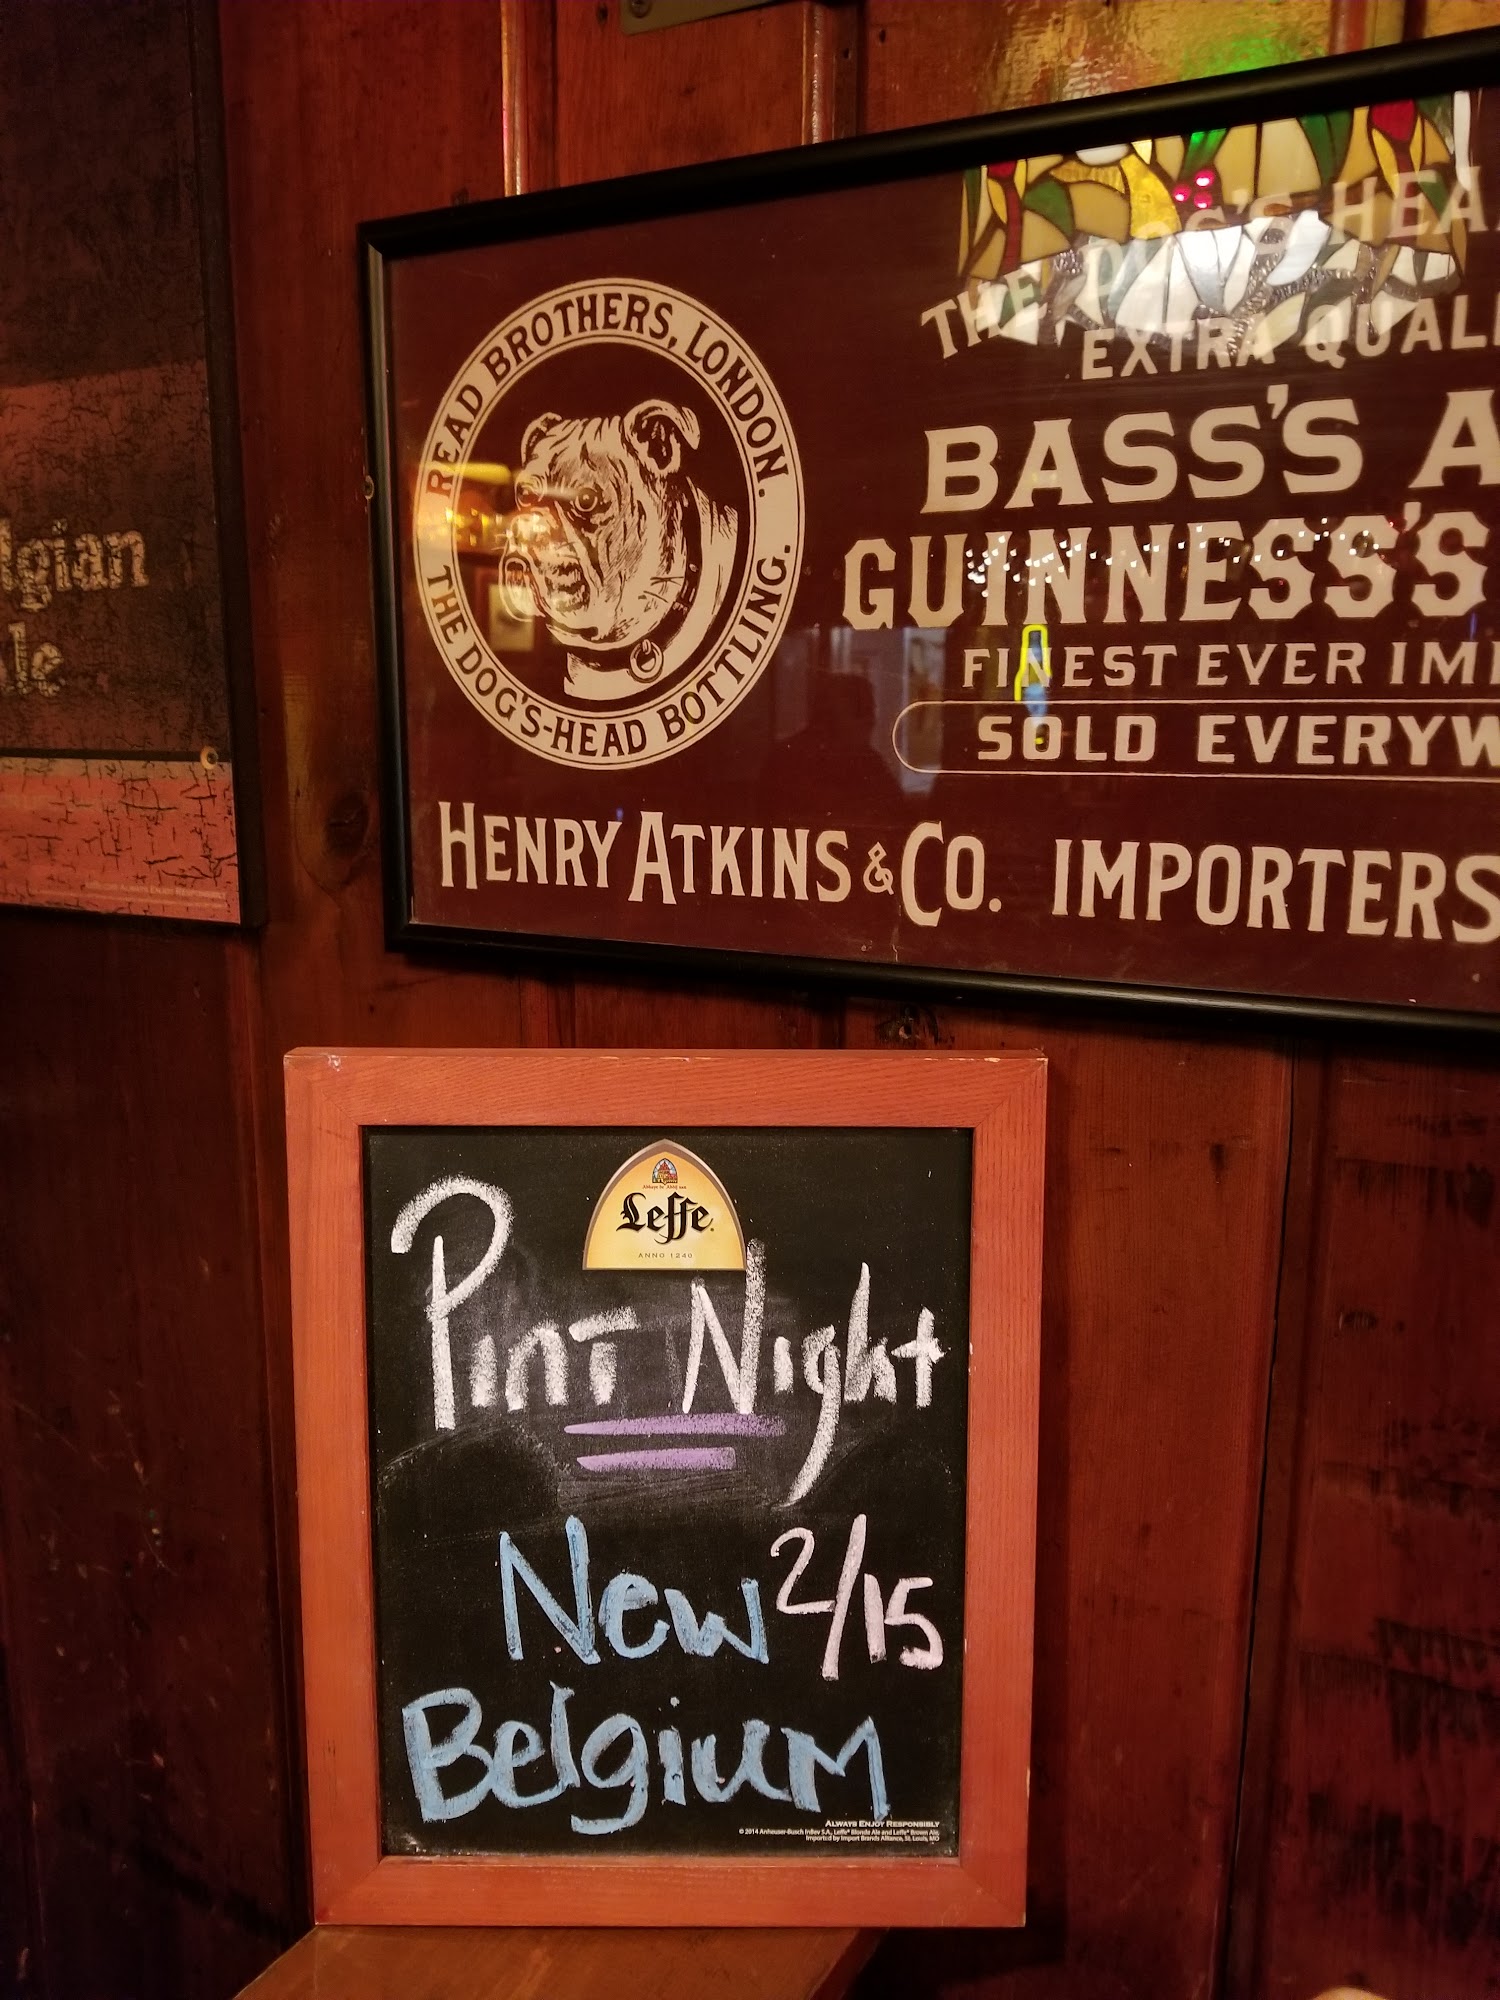 lgian
le
ALWAYS ENJOY RESPONSIBLY
READ BROTHERS, LONDON.
THE DOG'S-HEAD BOTTLING.
THE DOG'S HEA
EXTRA QUALI
BASS'S A
GUINNESS'S
FINEST EVER IM
SOLD EVERYW
HENRY ATKINS & CO. IMPORTERS
Leffe
ANNO 1240
Pint Night
New 2/15
Belgium
ALWAYS ENJOY RESPONSIBLY
© 2014 Anheuser-Busch InBev S.A., Leffe® Blonde Ale and Leffe® Brown Ale,
Imported by Import Brands Alliance, St. Louis, MO